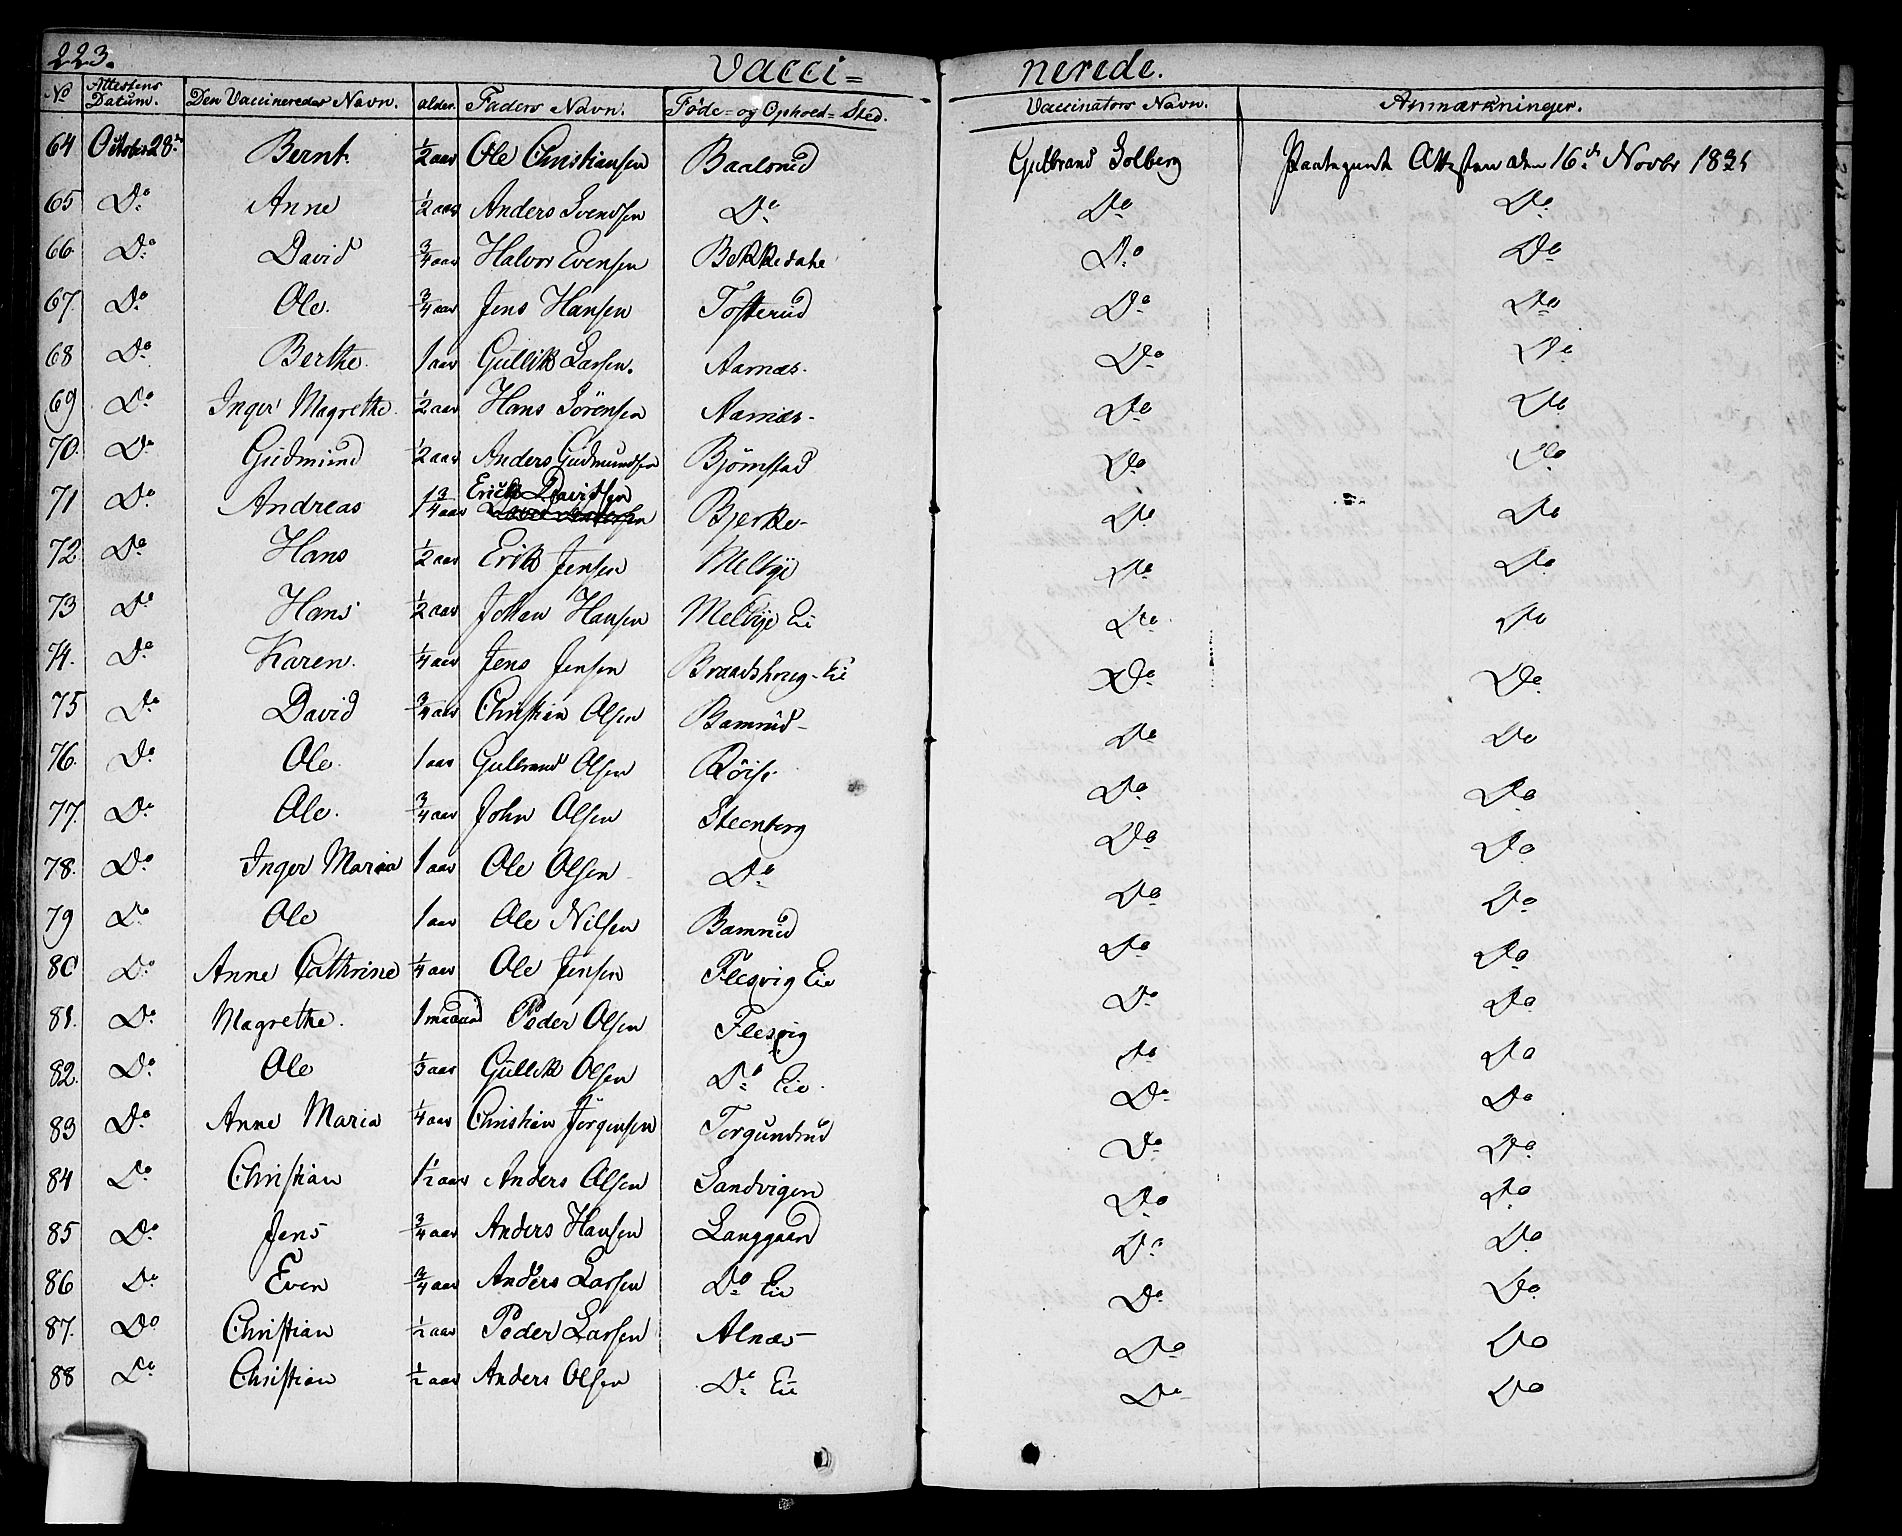 223. Vacci= nerede.
No Attestens Datum. Den Vaccineredes Navn. alder. Faders Navn. Föde= og Ophold= Sted. Vaccinators Navn. Anmærkninger.
64 October 28de Bernt ½ aar Ole Christiansen Baalsrud Gulbrand Solberg Attesten den 16de Novbr
65 Do Anne ½ aar Anders Svendsen Do Do Do
66 Do David ¾ aar Halvor Evensen Bekkedahl Do Do
67. Do Ole. ¾ aar Jens Hansen Tofterud Do Do
68 Do Berthe. 1 aar Gullik Larsen. Aarnæs. Do Do
69 Do Inger Magrethe. ½ aar Hans Sörensen Aarnæs. Do Do
70. Do Gudmund ½ aar Anders Gudmundsen Björnstad Do Do
71 Do Andreas 1¾ aar Erick Davidsen Bjerke. Do Do
72 Do Hans ½ aar Erik Jensen Melbye Do Do
73 Do Hans ½ aar Johan Hansen Melbye Eie Do Do
74. Do Karen. ¼ aar Jens Jensen Brandshoug Eie Do Do
75 Do David ¾ aar Christian Olsen Bamrud Do Do
76. Do Ole. 1 aar Gulbrand Olsen Röise Do Do
77. Do Ole. ¾ aar John Olsen Steenberg Do Do
78. Do Inger Maria 1 aar Ole Olsen Do Do Do
79 Do Ole 1 aar Ole Nilsen Bamrud Do Do
80 Do Anne Cathrine ¼ aar Ole Jensen Flesvig Eie Do Do
81. Do Magrethe. 1 maaned Peder Olsen Flesvig Do Do
82. Do Ole aar Gullik Olsen Do Eie. Do Do
83 Do Anne Maria ¼ aar Christian Jörgensen Torgundrud Do Do
84 Do Christian 1½ aar Anders Olsen Sandvigen Do Do
85 Do Jens ¾ aar Anders Hansen Langgaard Do Do
86 Do Even ¾ aar Anders Larsen Do Eie Do Do
87. Do Christian ½ aar Peder Larsen Alnæs Do Do
88 Do Christian ½ aar Anders Olsen Do Eie Do Do